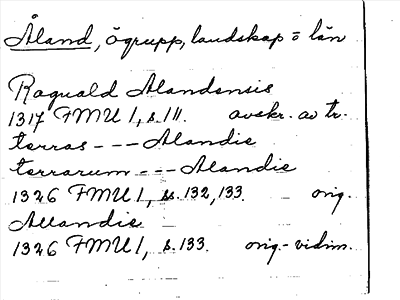 Åland, ögrupp, landskap o län
Ragnald Alandensis
1317 FMU I, s. 111. avskr. av tr.
terras --- Alandie
terrarum --- Alandie
1326 FMU I, ss. 132, 133. orig.
Allandie
1326 FMU I, s. 133. orig.-vidim.